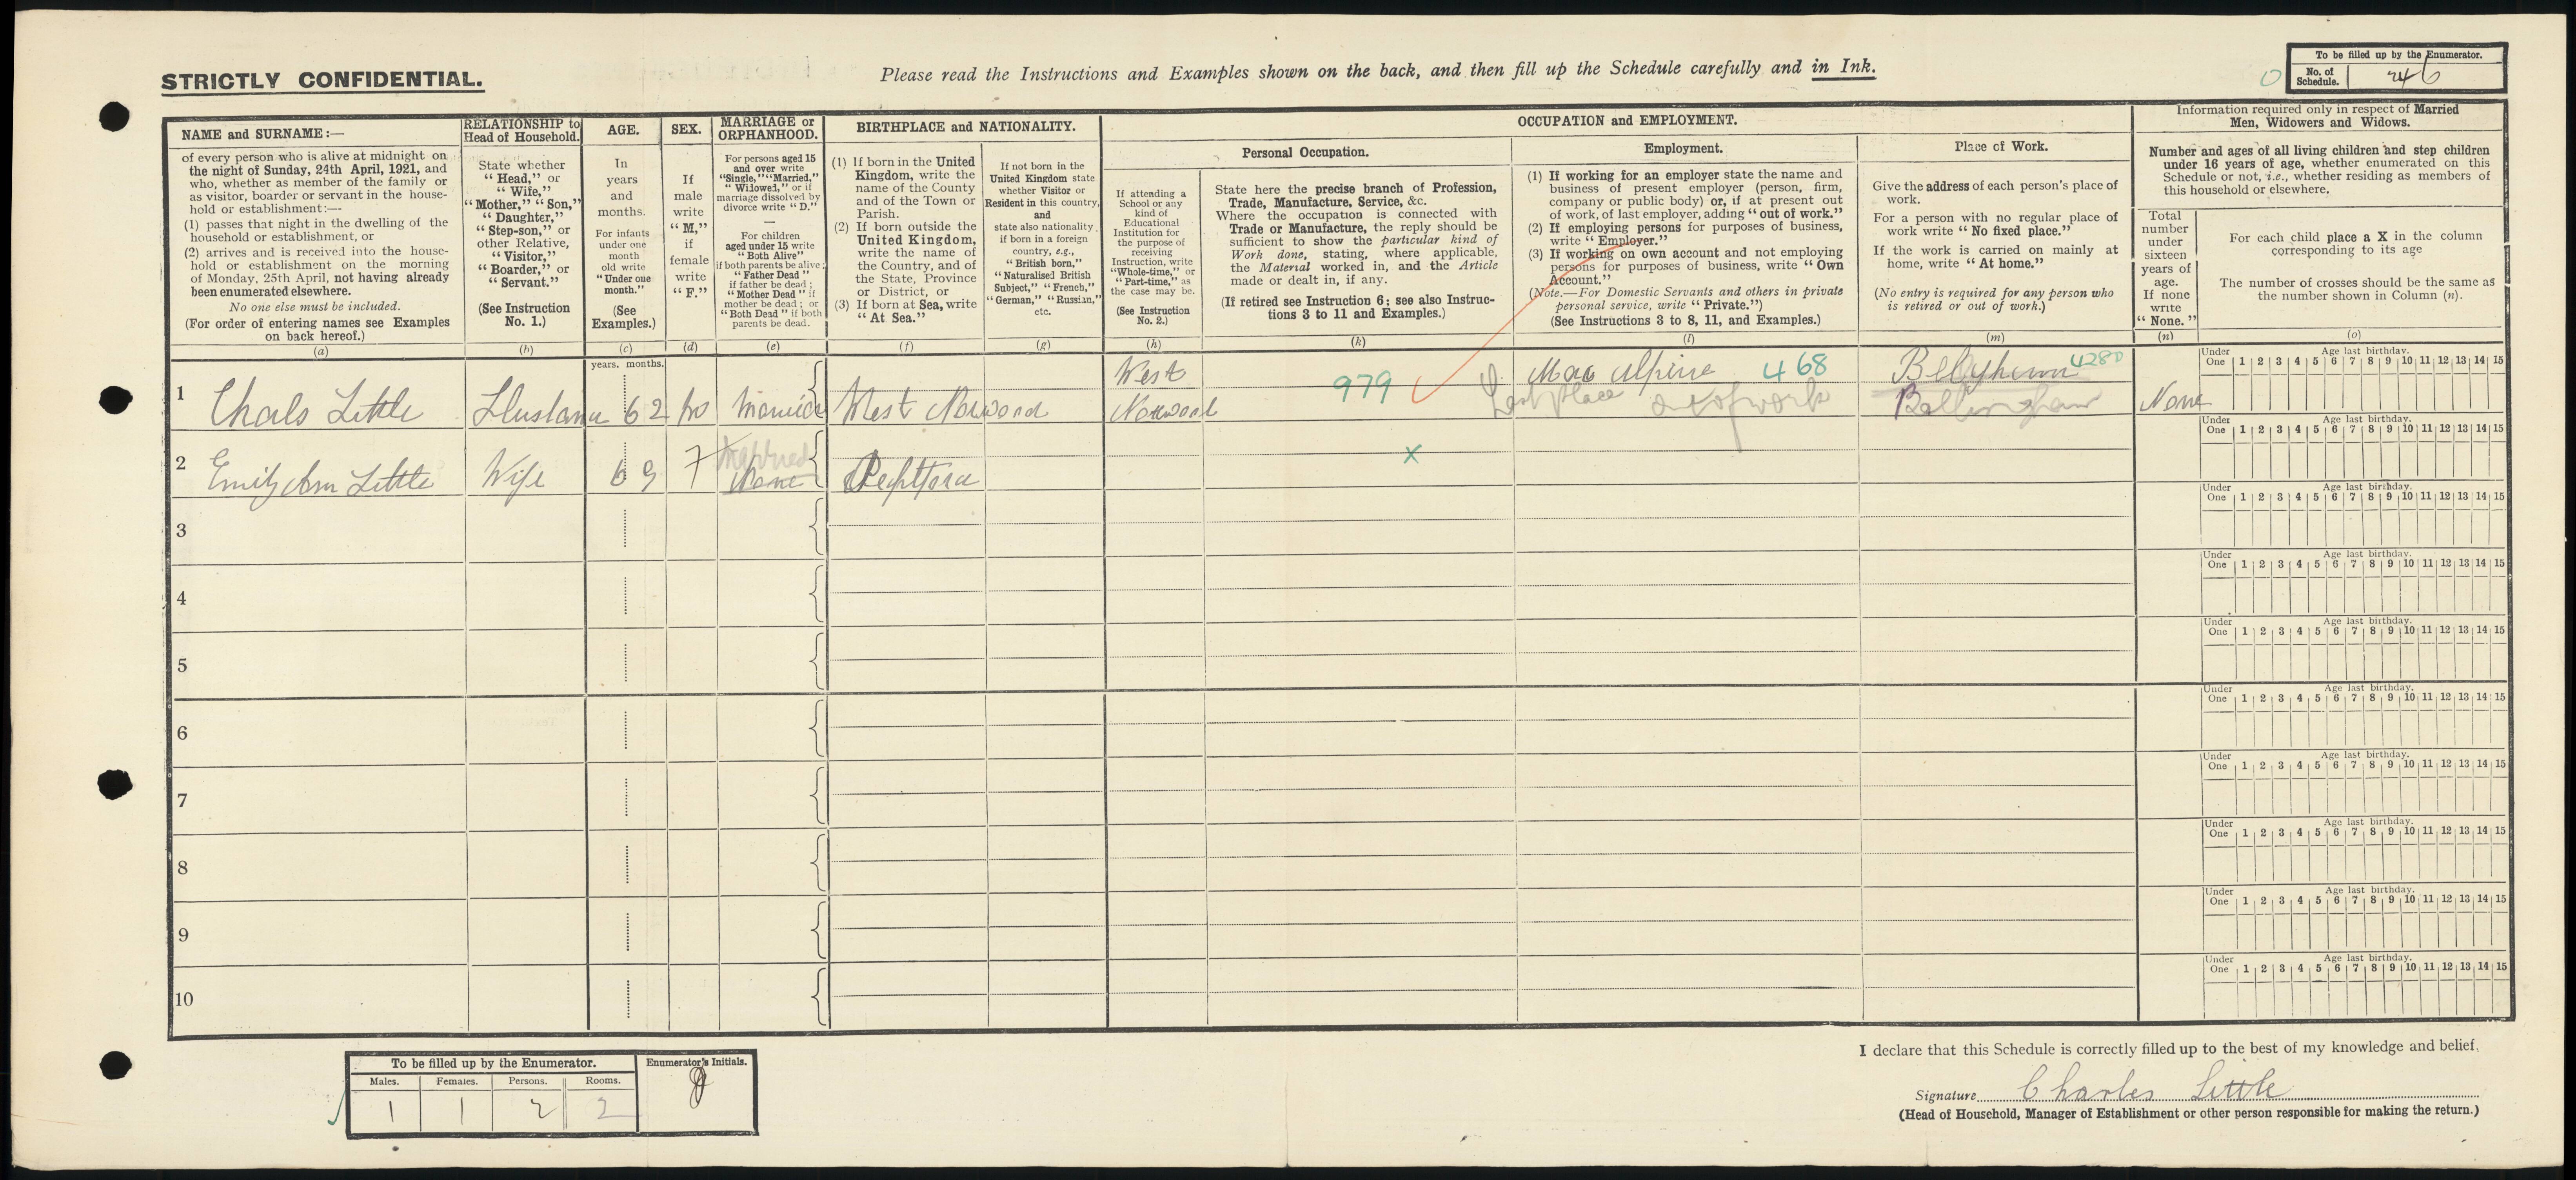 STRICTLY CONFIDENTIAL.
Please read the Instructions and Examples shown on the back, and then fill up the Schedule carefully and in Ink.
To be filled up by the Enumerator.
No. of Schedule. 246
NAME and SURNAME:—
of every person who is alive at midnight on
the night of Sunday, 24th April, 1921, and
who, whether as member of the family or
as visitor, boarder or servant in the house-
hold or establishment:—
(1) passes that night in the dwelling of the
household or establishment, or
(2) arrives and is received into the house-
hold or establishment on the morning
of Monday, 25th April, not having already
been enumerated elsewhere.
No one else must be included.
(For order of entering names see Examples
on back hereof.)
(a)
RELATIONSHIP to
Head of Household.
State whether
"Head," or
"Wife,"
"Mother," "Son,"
"Daughter,"
"Step-son," or
other Relative,
"Visitor,"
"Boarder," or
"Servant."
(See Instruction
No. 1.)
(b)
AGE.
In
years
and
months.
For infants
under one
month
old write
"Under one
month."
(See
Examples.)
(c)
SEX.
If
male
write
"M,"
if
female
write
"F."
(d)
MARRIAGE or
ORPHANHOOD.
For persons aged 15
and over write
"Single," "Married,"
"Widowed," or if
marriage dissolved by
divorce write "D."
—
For children
aged under 15 write
"Both Alive"
if both parents be alive;
"Father Dead"
if father be dead;
"Mother Dead" if
mother be dead; or
"Both Dead" if both
parents be dead.
(e)
BIRTHPLACE and NATIONALITY.
(1) If born in the United
Kingdom, write the
name of the County
and of the Town or
Parish.
(2) If born outside the
United Kingdom,
write the name of
the Country, and of
the State, Province
or District, or
(3) If born at Sea, write
"At Sea."
(f)
If not born in the
United Kingdom state
whether Visitor or
Resident in this country,
and
state also nationality
if born in a foreign
country, e.g.,
"British born,"
"Naturalised British
Subject," "French,"
"German," "Russian,"
etc.
(g)
OCCUPATION and EMPLOYMENT.
Personal Occupation.
If attending a
School or any
kind of
Educational
Institution for
the purpose of
receiving
Instruction, write
"Whole-time," or
"Part-time," as
the case may be.
(See Instruction
No. 2.)
(h)
State here the precise branch of Profession,
Trade, Manufacture, Service, &c.
Where the occupation is connected with
Trade or Manufacture, the reply should be
sufficient to show the particular kind of
Work done, stating, where applicable,
the Material worked in, and the Article
made or dealt in, if any.
(If retired see Instruction 6; see also Instruc-
tions 3 to 11 and Examples.)
(k)
Employment.
(1) If working for an employer state the name and
business of present employer (person, firm,
company or public body) or, if at present out
of work, of last employer, adding "out of work."
(2) If employing persons for purposes of business,
write "Employer."
(3) If working on own account and not employing
persons for purposes of business, write "Own
Account."
(Note.—For Domestic Servants and others in private
personal service, write "Private.")
(See Instructions 3 to 8, 11, and Examples.)
(l)
Place of Work.
Give the address of each person's place of
work.
For a person with no regular place of
work write "No fixed place."
If the work is carried on mainly at
home, write "At home."
(No entry is required for any person who
is retired or out of work.)
(m)
Information required only in respect of Married
Men, Widowers and Widows.
Number and ages of all living children and step children
under 16 years of age, whether enumerated on this
Schedule or not, i.e., whether residing as members of
this household or elsewhere.
Total
number
under
sixteen
years of
age.
If none
write
"None."
(n)
For each child place a X in the column
corresponding to its age
The number of crosses should be the same as
the number shown in Column (n).
(o)
years. months.
Under One Age last birthday. 1 2 3 4 5 6 7 8 9 10 11 12 13 14 15
West 979 Mac Alpine 468 4280
1 Chals Little 62 Married West Norwood Norwood Last place out of work Bellingham None
Under One Age last birthday. 1 2 3 4 5 6 7 8 9 10 11 12 13 14 15
Married X
2 Emily Ann Little Wife 69 F None Deptford
Under One Age last birthday. 1 2 3 4 5 6 7 8 9 10 11 12 13 14 15
3
Under One Age last birthday. 1 2 3 4 5 6 7 8 9 10 11 12 13 14 15
4
Under One Age last birthday. 1 2 3 4 5 6 7 8 9 10 11 12 13 14 15
5
Under One Age last birthday. 1 2 3 4 5 6 7 8 9 10 11 12 13 14 15
6
Under One Age last birthday. 1 2 3 4 5 6 7 8 9 10 11 12 13 14 15
7
Under One Age last birthday. 1 2 3 4 5 6 7 8 9 10 11 12 13 14 15
8
Under One Age last birthday. 1 2 3 4 5 6 7 8 9 10 11 12 13 14 15
9
Under One Age last birthday. 1 2 3 4 5 6 7 8 9 10 11 12 13 14 15
10
To be filled up by the Enumerator.
Males. Females. Persons. Rooms.
1 1 2 2
Enumerator's Initials.
I declare that this Schedule is correctly filled up to the best of my knowledge and belief.
Signature Charles Little
(Head of Household, Manager of Establishment or other person responsible for making the return.)